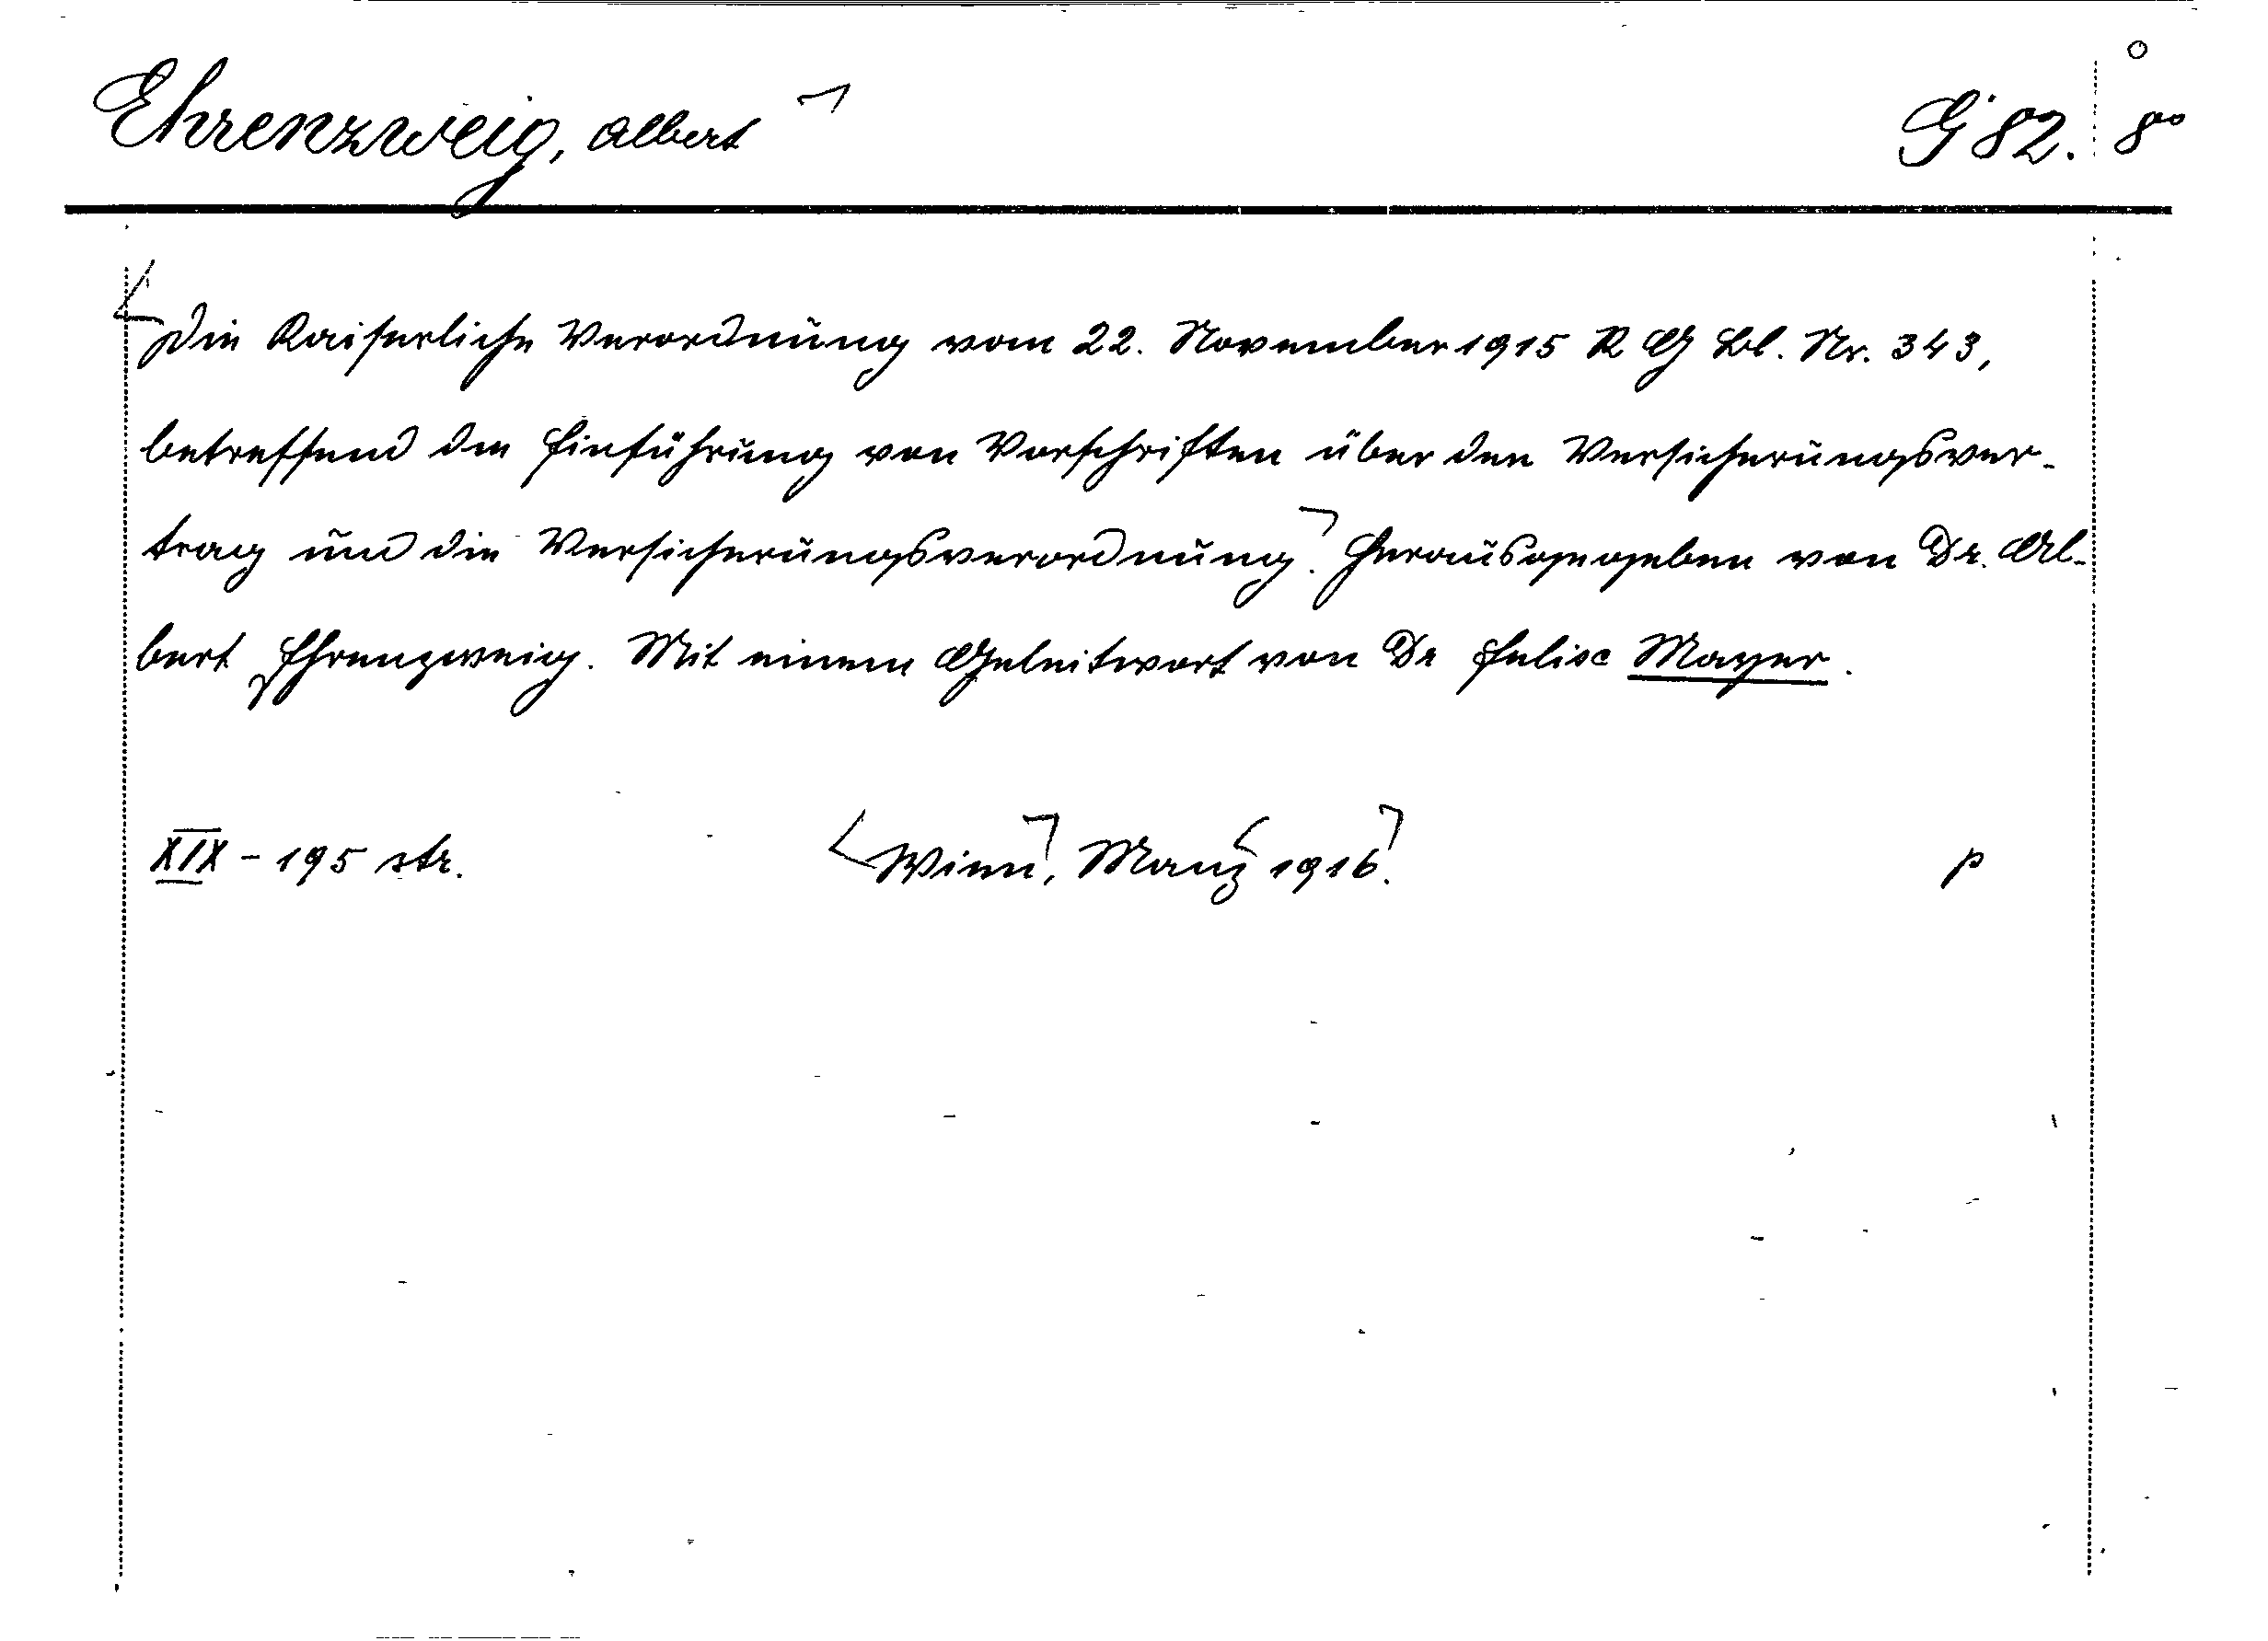 Ehrenzweig, Albert G 82. 8⁰⁰
Die Kaiserliche Verordnung vom 22. November 1915 R G Bl. Nr. 343,
betreffend die Einführung von Vorschriften über den Versicherungsver-
trag und die Versicherungsverordnung. Herausgegeben von Dr. Al-
bert Ehrenzweig. Mit einem Geleitwort von Dr Felix Mayer.
XIX - 195 str. Wien, Manz 1916. p